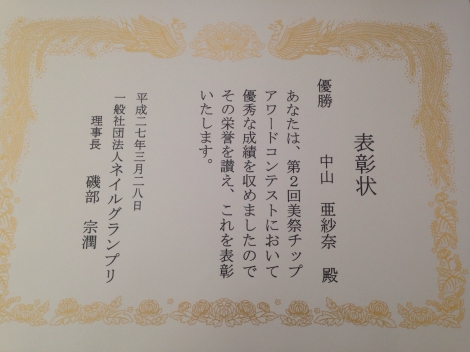 表彰状
優勝　中山　亜紗奈　殿
あなたは、第2回美祭チップ
アワードコンテストにおいて
優秀な成績を収めましたので
その栄誉を讃え、これを表彰
いたします。
平成二七年三月二八日
一般社団法人ネイルグランプリ
理事長　磯部　宗潤